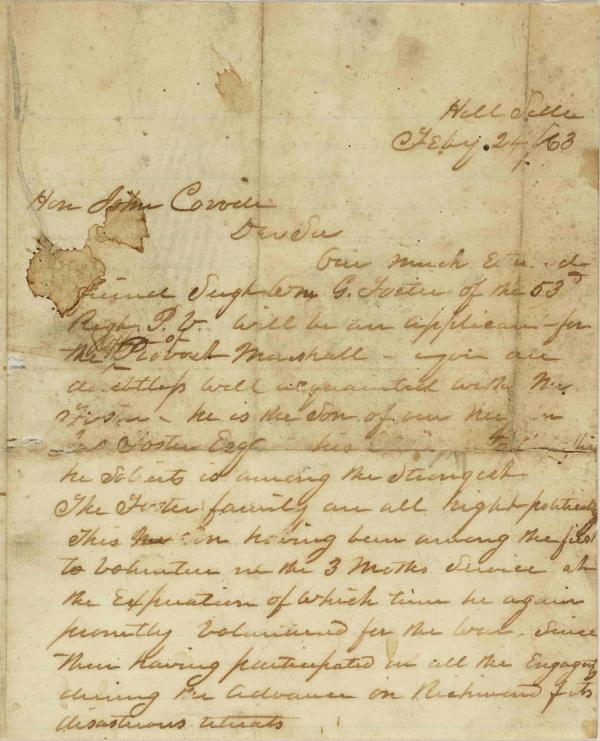 Hill Side
Feby. 24/63
Hon John Covode
Dear Sir
Our much
friend Wm G. Foster of the 53rd
Regt P. V. will be an applicant for
the office of Provost Marshall - you are
doubtless well acquainted with Mr
Foster - he is the Son of our
Foster Esq his
he is among the Strongest
The Foster family are all right politically
This Son having been among the first
to Volunteer in the 3 Moths Service at
the Expiration of which time he again
promtly Volunteered for the War. Since
then having participated in all the Engag
during the advance on Richmond & its
disastrous retreats